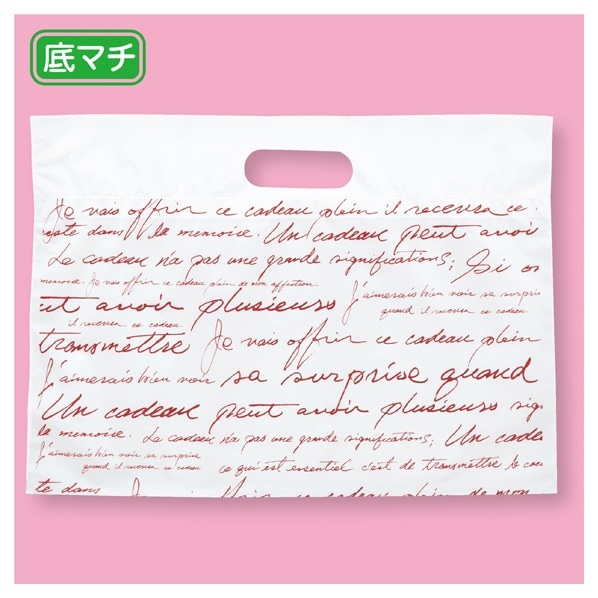 底マチ
Je vais offrir ce cadeau plein il recevra ce
reste dans la memoire. Un cadeau peut avoir
Le cadeau n'a pas une grande significations; Si on
memoire. Je vais offrir ce cadeau plein de mon affection.
ut avoir plusieurs J'aimerais bien voir sa surprise
il recevra ce cadeau quand il recevra ce cadeau
transmettre Je vais offrir ce cadeau plein
J'aimerais bien voir sa surprise quand
Un cadeau peut avoir plusieurs sig
la memoire. Le cadeau n'a pas une grande significations; Un cade
J'aimerais bien voir sa surprise
quand il recevra ce cadeau ce qui est essentiel c'est de transmettre le coeu
te dans J'aime offrir ce cadeau plein de mon